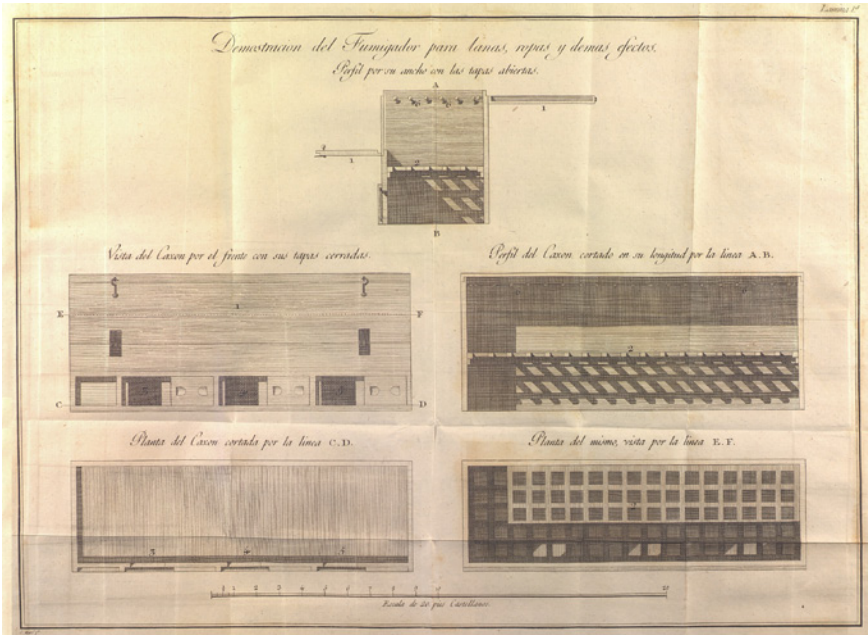 Lamina 1ª
Demostracion del Fumigador para lanas, ropas y demas efectos.
Perfil por su ancho con las tapas abiertas.
A
1
1
2
B
Vista del Caxon por el frente con sus tapas cerradas.
Perfil del Caxon cortado en su longitud por la linea A.B.
1
E F
2
3 4 5
C D
Planta del Caxon cortada por la linea C.D.
Planta del mismo, vista por la linea E.F.
2
3 4 5
1 2 3 4 5 6 7 8 9 10 20
Escala de 20 pies Castellanos.